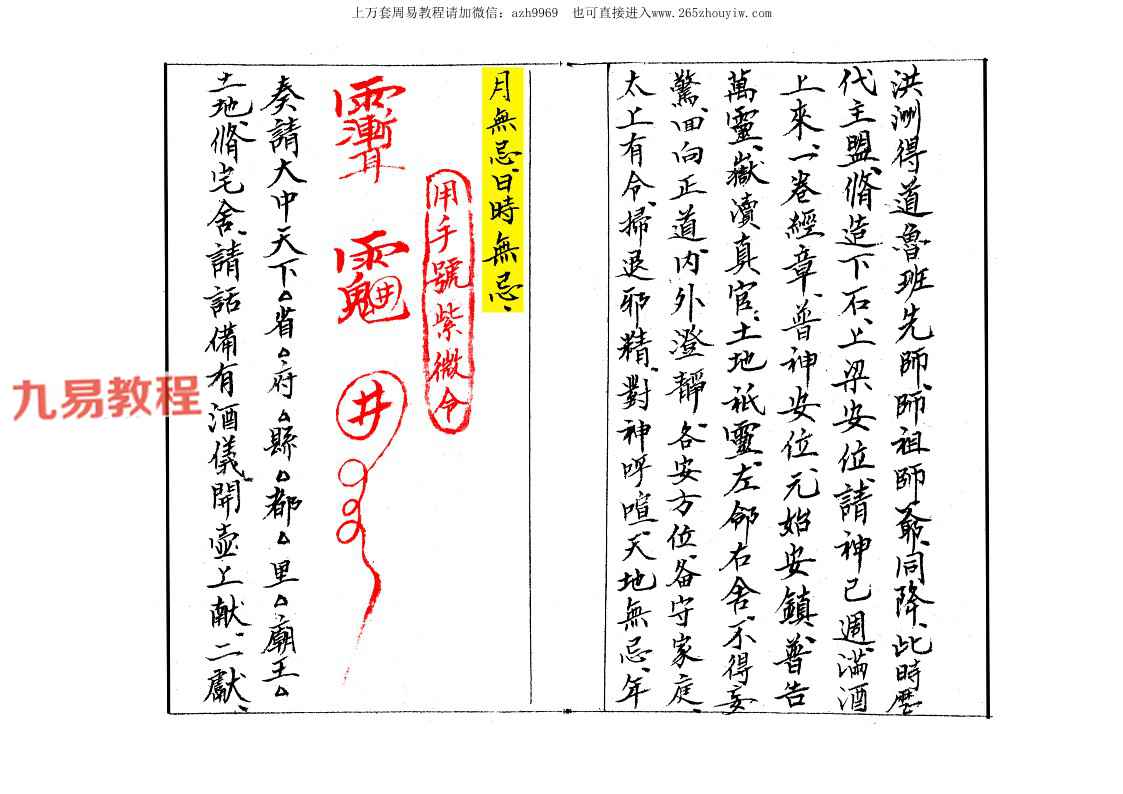 上万套周易教程请加微信：azh9969　也可直接进入www.265zhouyiw.com
洪洲得道魯班先師、師祖師爺、同降、此時歷
代主盟、脩造下石、上梁安位、請神已週、滿酒
上來、一卷經章、普神安位、元始安鎮、普告
萬靈、嶽瀆真官、土地衹靈、左命右舍、不得妄
驚、回向正道、內外澄靜、各安方位、备守家庭、
太上有令、掃退邪精、對神呼喧、天地無忌、年
月無忌、日時無忌、
用手號紫微令
井
井
奏請大中天下△省△府△縣△都△里△廟王△
土地、脩宅舍、請話備有酒儀、開壺上献、二獻、
九易教程